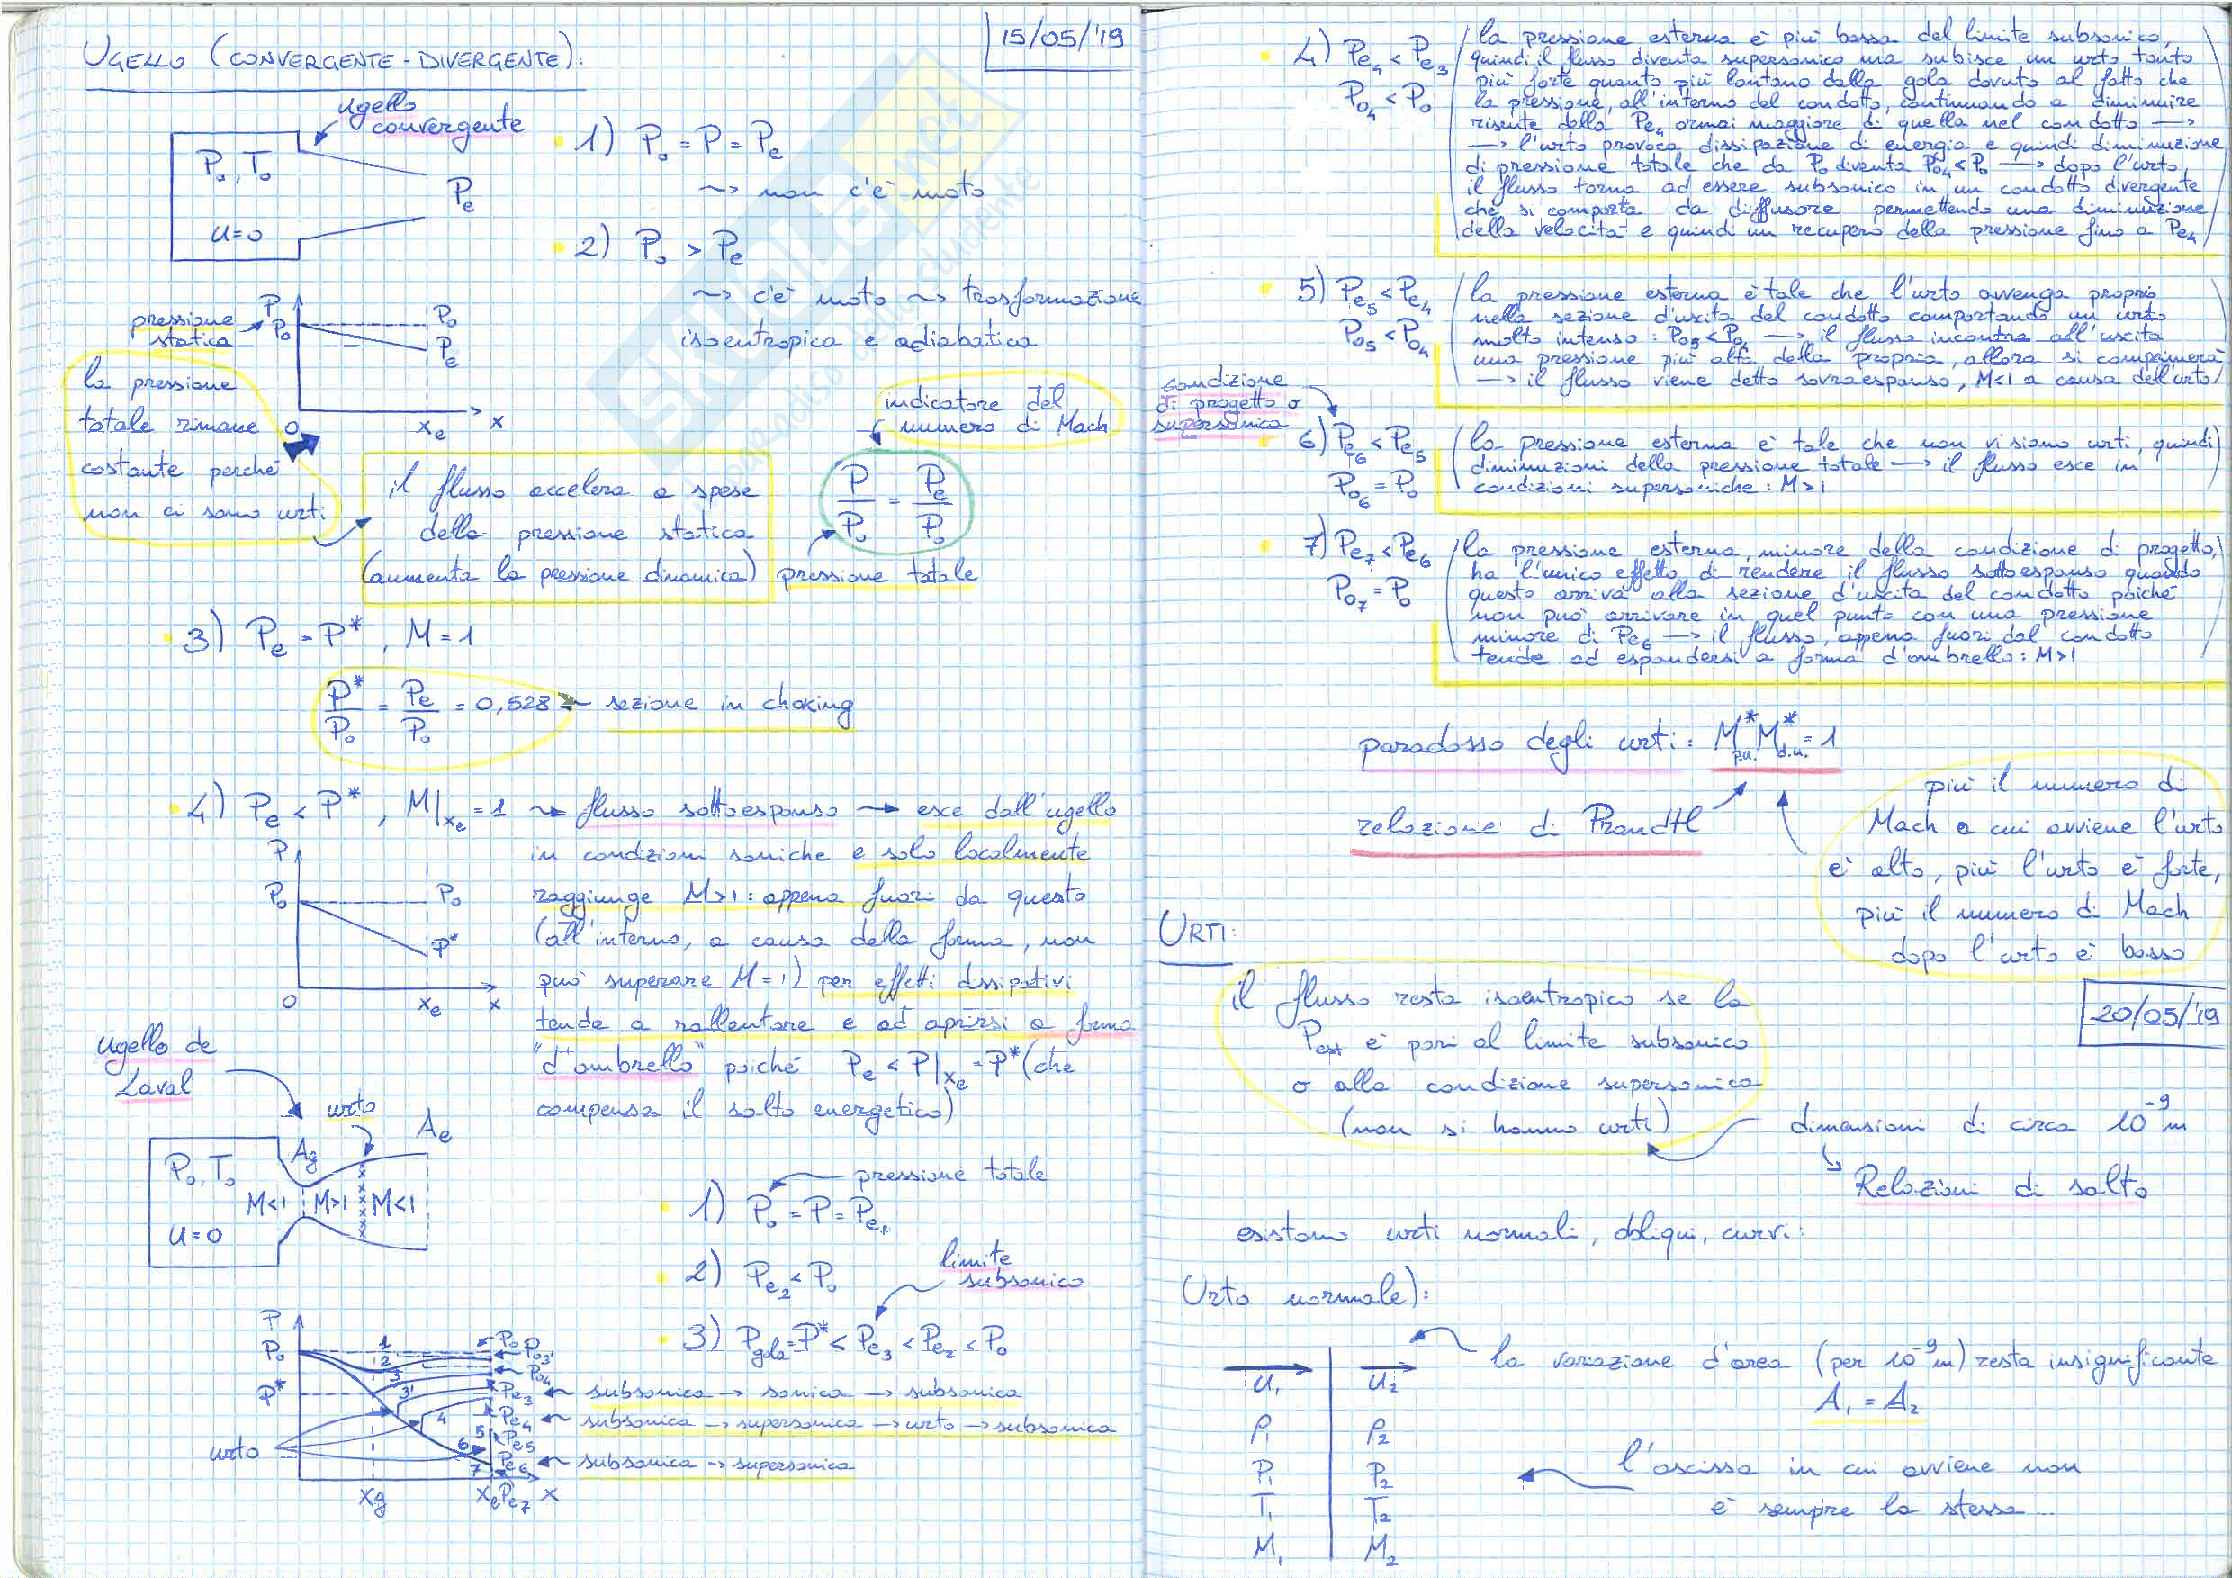 UGELLO (CONVERGENTE-DIVERGENTE):
15/05/'19
ugello
convergente
P₀, T₀
Pe
u=0
1) P₀ = P = Pe
~> non c'è moto
2) P₀ > Pe
~> c'è moto ~> trasformazione
isoentropica e adiabatica
pressione
statica
P
P₀
P₀
Pe
0
xe
x
la pressione
totale rimane
costante perché
non ci sono urti
il flusso accelera a spese
della pressione statica
(aumenta la pressione dinamica)
indicatore del
numero di Mach
P/P₀ = Pe/P₀
pressione totale
3) Pe = P* , M = 1
P*/P₀ = Pe/P₀ = 0,528 ~ sezione in choking
4) Pe < P* , M|xe = 1 ~> flusso sottoespanso → esce dall'ugello
in condizioni soniche e solo localmente
raggiunge M>1: appena fuori da questo
(all'interno, a causa della forma, non
può superare M=1) per effetti dissipativi
tende a rallentare e ad aprirsi a forma
"d'ombrello" poiché Pe < P|xe = P* (che
compensa il salto energetico)
P
P₀
P₀
P*
0
xe
x
ugello de
Laval
urto
Ag
Ae
P₀, T₀
M<1
M>1
M<1
u=0
pressione totale
1) P₀ = P = Pe₁
2) Pe₂ < P₀
limite
subsonico
3) Pgola = P* < Pe₃ < Pe₂ < P₀
P
P₀
P*
1
2
3
3'
4
5
6
7
P₀
P₀₃'
P₀₄
Pe₃ ← subsonica → sonica → subsonica
Pe₄ ← subsonica → supersonica → urto → subsonica
Pe₅
Pe₆ ← subsonica → supersonica
urto
xg
xe
Pe₇
x
4) Pe₄ < Pe₃
P₀₄ < P₀
(la pressione esterna è più bassa del limite subsonico,
quindi il flusso diventa supersonico ma subisce un urto tanto
più forte quanto più lontano dalla gola dovuto al fatto che
la pressione, all'interno del condotto, continuando a diminuire
risente della Pe₄ ormai maggiore di quella nel condotto →
→ l'urto provoca dissipazione di energia e quindi diminuzione
di pressione totale che da P₀ diventa P₀₄<P₀ → dopo l'urto,
il flusso torna ad essere subsonico in un condotto divergente
che si comporta da diffusore permettendo una diminuzione
della velocità e quindi un recupero della pressione fino a Pe₄)
5) Pe₅ < Pe₄
P₀₅ < P₀₄
(la pressione esterna è tale che l'urto avvenga proprio
nella sezione d'uscita del condotto comportando un urto
molto intenso: P₀₅<P₀₄ → il flusso incontra all'uscita
una pressione più alta della propria, allora si comprimerà
→ il flusso viene detto sovraespanso, M<1 a causa dell'urto)
condizione
di progetto o
supersonica
6) Pe₆ < Pe₅
P₀₆ = P₀
(la pressione esterna è tale che non vi siano urti, quindi
diminuzioni della pressione totale → il flusso esce in
condizioni supersoniche: M>1
7) Pe₇ < Pe₆
P₀₇ = P₀
(la pressione esterna, minore della condizione di progetto,
ha l'unico effetto di rendere il flusso sottoespanso quando
questo arriva alla sezione d'uscita del condotto poiché
non può arrivare in quel punto con una pressione
minore di Pe₆ → il flusso, appena fuori dal condotto
tende ad espandersi a forma d'ombrello: M>1
paradosso degli urti: M*p.u. M*d.u. = 1
relazione di Prandtl
più il numero di
Mach a cui avviene l'urto
è alto, più l'urto è forte,
più il numero di Mach
dopo l'urto è basso
URTI:
20/05/'19
il flusso resta isoentropico se la
Pest è pari al limite subsonico
o alla condizione supersonica
(non si hanno urti)
dimensioni di circa 10⁻⁹ m
Relazioni di salto
esistono urti normali, obliqui, curvi:
Urto normale):
u₁
u₂
la variazione d'area (per 10⁻⁹ m) resta insignificante
A₁ = A₂
ρ₁
ρ₂
P₁
P₂
l'ascissa in cui avviene non
è sempre la stessa...
T₁
T₂
M₁
M₂